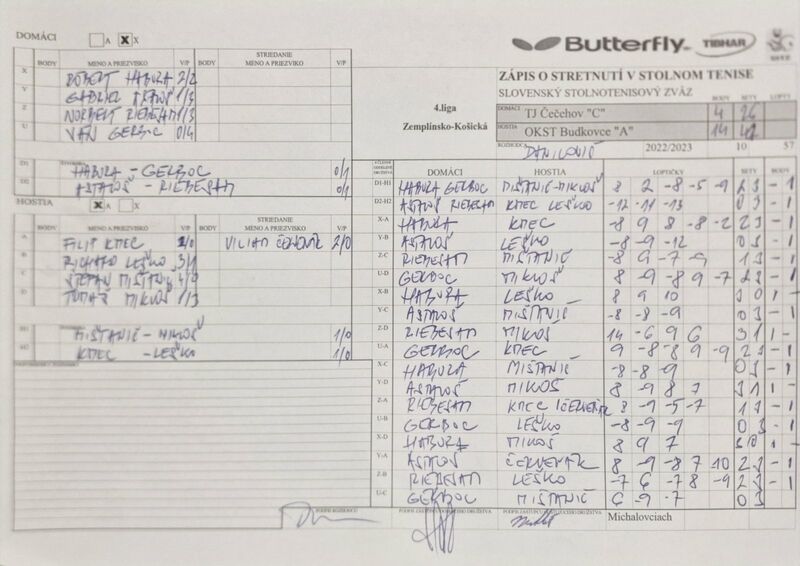 DOMÁCI A X X
Butterfly TIBHAR
BODY MENO A PRIEZVISKO V/P BODY STRIEDANIE MENO A PRIEZVISKO V/P
X RÓBERT HABURA 2/2
Y GABRIEL ASTALOŠ 1/3
Z NORBERT RIEBESAM 1/3
U VAN GERBOC 0/4
D1 HABURA - GERBOC 0/1
D2 ASTALOŠ - RIEBESAM 0/1
HOSTIA X
BODY MENO A PRIEZVISKO V/P BODY STRIEDANIE MENO A PRIEZVISKO V/P
A FILIP KMEC 2/0 VILIAM ČERVEŇÁK 2/0
B RICHARD LEŠKO 3/1
C ŠTEFAN MIŠTANIČ 4/0
D TOMÁŠ MIKLOŠ 1/3
H1 MIŠTANIČ - MIKLOŠ 1/0
H2 KMEC - LEŠKO 1/0
PODPIS ROZHODCU
4.liga
Zemplínsko-Košická
ZÁPIS O STRETNUTÍ V STOLNOM TENISE
SLOVENSKÝ STOLNOTENISOVÝ ZVÄZ BODY SETY LOPTY
DOMÁCI TJ Čečehov "C" 4 26
HOSTIA OKST Budkovce "A" 14
ROZHODCA 2022/2023 10 57
DOMÁCI HOSTIA LOPTIČKY SETY BODY
D1-H1 HABURA GERBOC MIŠTANIČ-MIKLOŠ 8 2 -8 -5 -9 2 3 - 1
D2-H2 ASTALOŠ RIEBESAM KMEC LEŠKO -12 -11 -13 0 3 - 1
X-A HABURA KMEC -8 9 8 -8 -2 2 3 - 1
Y-B ASTALOŠ LEŠKO -8 -9 -12 0 3 - 1
Z-C RIEBESAM MIŠTANIČ -8 9 -7 -9 1 3 - 1
U-D GERBOC MIKLOŠ 8 -9 -8 9 -7 2 3 - 1
X-B HABURA LEŠKO 8 9 10 3 0 1 -
Y-C ASTALOŠ MIŠTANIČ -8 -8 -9 0 3 - 1
Z-D RIEBESAM MIKLOŠ 14 -6 9 6 3 1 1 -
U-A GERBOC KMEC 9 -8 -8 9 -9 2 3 - 1
X-C HABURA MIŠTANIČ -8 -8 -9 0 3 - 1
Y-D ASTALOŠ MIKLOŠ 8 -9 8 7 3 1 1 -
Z-A RIEBESAM KMEC (ČERVEŇÁK 8 -9 -5 -7 1 3 - 1
U-B GERBOC LEŠKO -8 -9 -9 0 3 - 1
X-D HABURA MIKLOŠ 8 9 7 3 0 1 -
Y-A ASTALOŠ ČERVEŇÁK 8 -9 -8 7 -10 2 3 - 1
Z-B RIEBESAM LEŠKO -7 6 -7 8 -9 2 3 - 1
U-C GERBOC MIŠTANIČ -6 -9 -7 0 3
Michalovciach